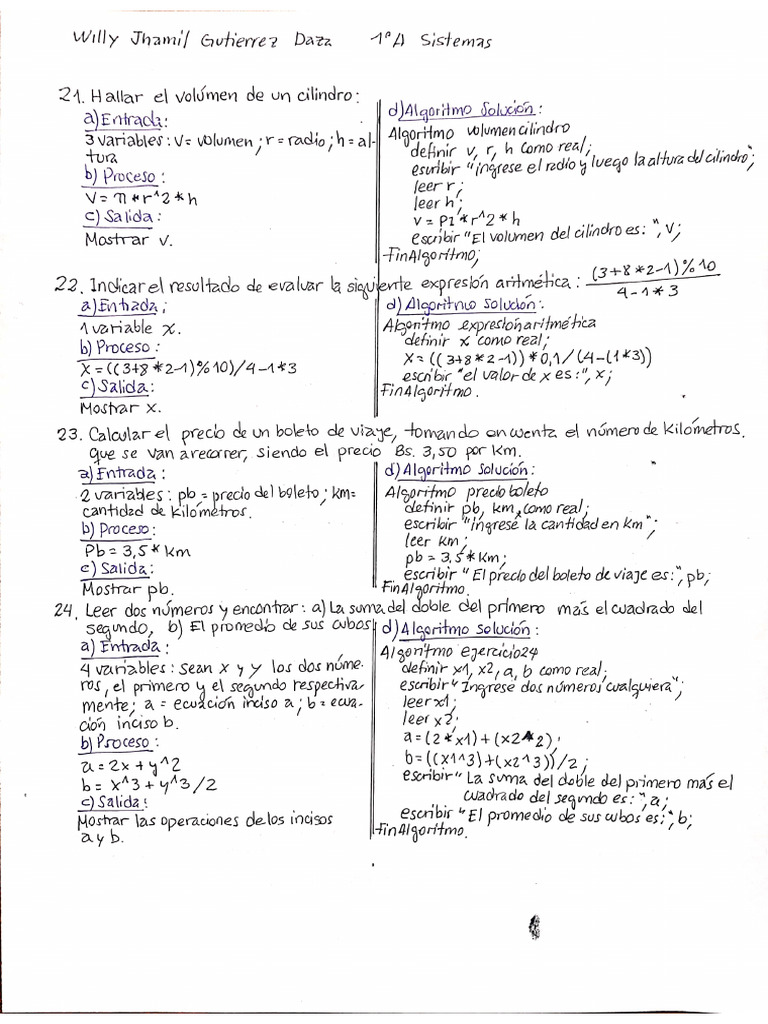 Willy Jhamil Gutierrez Daza 1ºA Sistemas
21. Hallar el volúmen de un cilindro:
a) Entrada:
3 variables: V= volumen; r= radio; h= al-
tura
b) Proceso:
V= π*r^2*h
c) Salida:
Mostrar v.
d) Algoritmo Solución:
Algoritmo volumencilindro
definir v, r, h como real;
escribir "ingrese el radio y luego la altura del cilindro";
leer r;
leer h;
v= PI*r^2*h
escribir "El volumen del cilindro es: ", v;
FinAlgoritmo;
22. Indicar el resultado de evaluar la siguiente expresión aritmética: (3+8*2-1)%10
4-1*3
a) Entrada:
1 variable x.
b) Proceso:
X=((3+8*2-1)%10)/4-1*3
c) Salida:
Mostrar x.
d) Algoritmo solución:
Algoritmo expresiónaritmética
definir x como real;
X=((3+8*2-1))*0,1/(4-(1*3))
escribir "el valor de x es:", x;
FinAlgoritmo.
23. Calcular el precio de un boleto de viaje, tomando en cuenta el número de kilómetros.
que se van a recorrer, siendo el precio Bs. 3,50 por Km.
a) Entrada:
2 variables: pb= precio del boleto; km=
cantidad de kilómetros.
b) Proceso:
Pb= 3,5*Km
c) Salida:
Mostrar pb.
d) Algoritmo Solución:
Algoritmo precioboleto
definir pb, km, como real;
escribir "ingrese la cantidad en km";
leer km;
pb= 3,5*Km;
escribir "El precio del boleto de viaje es:", pb;
FinAlgoritmo.
24. Leer dos números y encontrar: a) La suma del doble del primero más el cuadrado del
segundo, b) El promedio de sus cubos
a) Entrada:
4 variables: sean x y y los dos núme-
ros, el primero y el segundo respectiva-
mente; a = ecuación inciso a; b= ecua-
ción inciso b.
b) Proceso:
a=2x+y^2
b= x^3+y^3/2
c) Salida:
Mostrar las operaciones de los incisos
a y b.
d) Algoritmo solución:
Algoritmo ejercicio24
definir x1, x2, a, b como real;
escribir "Ingrese dos números cualquiera";
leer x1;
leer x2;
a=(2*x1)+(x2^2);
b=((x1^3)+(x2^3))/2;
escribir "La suma del doble del primero más el
cuadrado del segundo es: ", a;
escribir "El promedio de sus cubos es:", b;
FinAlgoritmo.